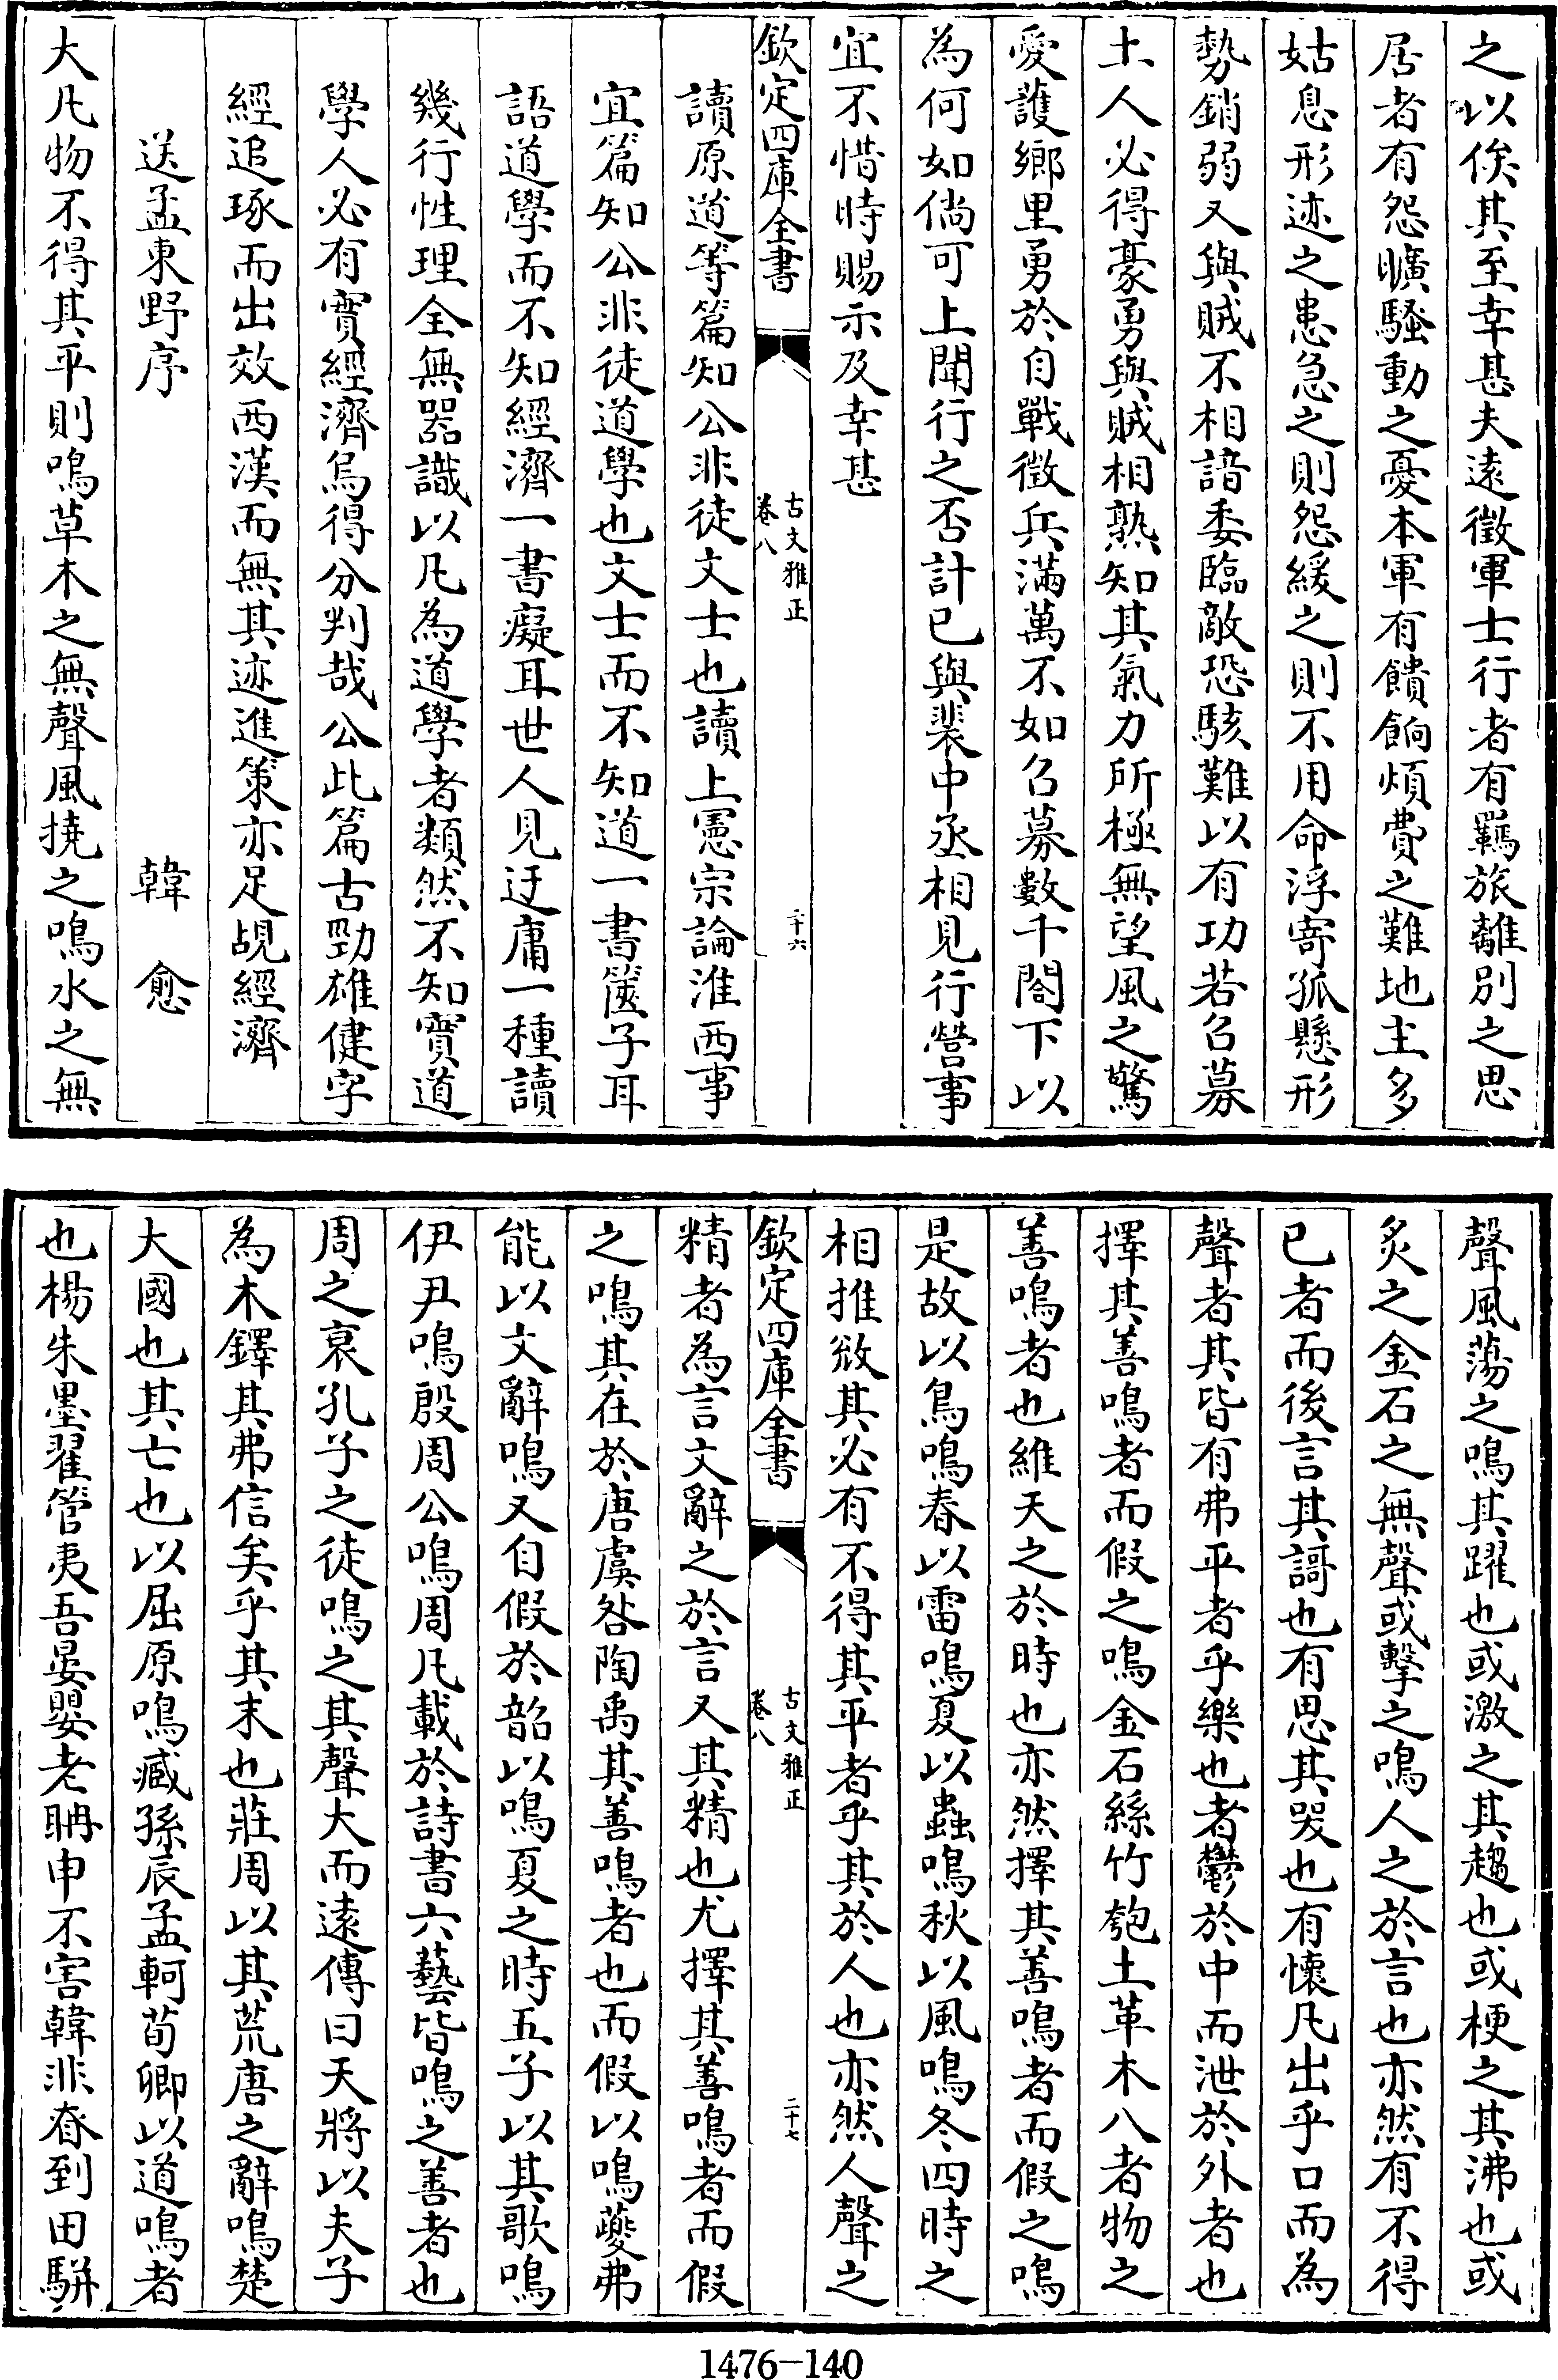 之以俟其至幸甚夫遠徵軍士行者有羈旅離別之思
居者有怨曠騷動之憂本軍有饋餉煩費之難地主多
姑息形迹之患急之則怨緩之則不用命浮寄孤懸形
勢銷弱又與賊不相諳委臨敵恐駭難以有功若召募
土人必得豪勇與賊相熟知其氣力所極無望風之驚
愛護鄉里勇於自戰徵兵滿萬不如召募數千閤下以
為何如倘可上聞行之否計已與裴中丞相見行營事
宜不惜時賜示及幸甚
欽定四庫全書
古文雅正
卷八
二十六
讀原道等篇知公非徒文士也讀上憲宗論淮西事
宜篇知公非徒道學也文士而不知道一書簏子耳
語道學而不知經濟一書癡耳世人見迂庸一種讀
幾行性理全無器識以凡為道學者類然不知實道
學人必有實經濟烏得分判哉公此篇古勁雄健字
經追琢而出效西漢而無其迹進策亦足覘經濟
送孟東野序
韓愈
大凡物不得其平則鳴草木之無聲風撓之鳴水之無
聲風蕩之鳴其躍也或激之其趨也或梗之其沸也或
炙之金石之無聲或擊之鳴人之於言也亦然有不得
已者而後言其謌也有思其哭也有懷凡出乎口而為
聲者其皆有弗平者乎樂也者鬱於中而泄於外者也
擇其善鳴者而假之鳴金石絲竹匏土革木八者物之
善鳴者也維天之於時也亦然擇其善鳴者而假之鳴
是故以鳥鳴春以雷鳴夏以蟲鳴秋以風鳴冬四時之
相推敓其必有不得其平者乎其於人也亦然人聲之
欽定四庫全書
古文雅正
卷八
二十七
精者為言文辭之於言又其精也尤擇其善鳴者而假
之鳴其在於唐虞咎陶禹其善鳴者也而假以鳴夔弗
能以文辭鳴又自假於韶以鳴夏之時五子以其歌鳴
伊尹鳴殷周公鳴周凡載於詩書六藝皆鳴之善者也
周之衰孔子之徒鳴之其聲大而遠傳曰天將以夫子
為木鐸其弗信矣乎其末也莊周以其荒唐之辭鳴楚
大國也其亡也以屈原鳴臧孫辰孟軻荀卿以道鳴者
也楊朱墨翟管夷吾晏嬰老聃申不害韓非眘到田駢
1476-140